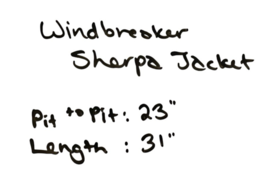 Windbreaker
Sherpa Jacket
Pit to Pit: 23"
Length : 31"